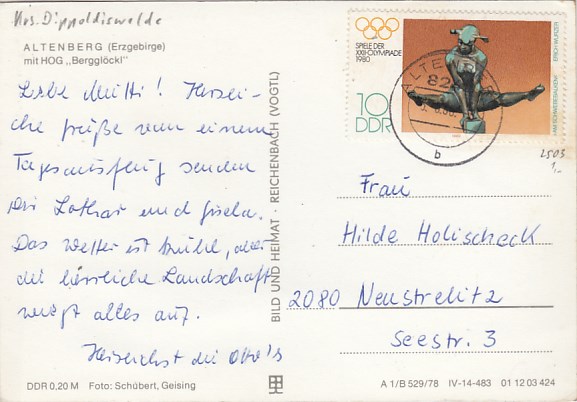 Krs. Dippoldiswalde
ALTENBERG (Erzgebirge)
mit HOG „Bergglöckl"
Liebe Mutti! Herzli-
che Grüße von einem
Tagesausflug senden
Dir Lothar und Gisela.
Das Wetter ist trübe, aber
die herrliche Landschaft
wiegt alles auf.
Herzlichst die Otto's
DDR 0,20 M Foto: Schübert, Geising
BILD UND HEIMAT · REICHENBACH (VOGTL)
SPIELE DER
XXII. OLYMPIADE
1980
10
DDR
AM SCHWEBEBALKEN
ALTENBERG
82
b
2503
1,-
Frau
Hilde Holischeck
2080 Neustrelitz
Seestr. 3
A 1/B 529/78 IV-14-483 01 12 03 424